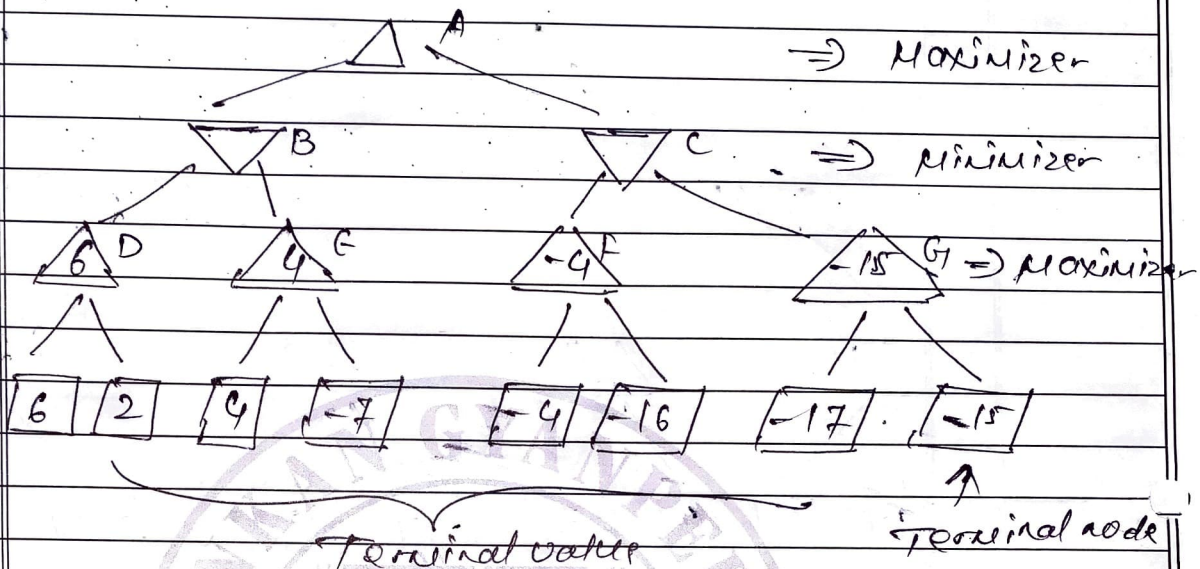 A => Maximizer
B C => Minimizer
6 D 4 E -4 F -15 G => Maximizer
6 2 4 -7 -4 -16 -17 -15
Terminal value Terminal node